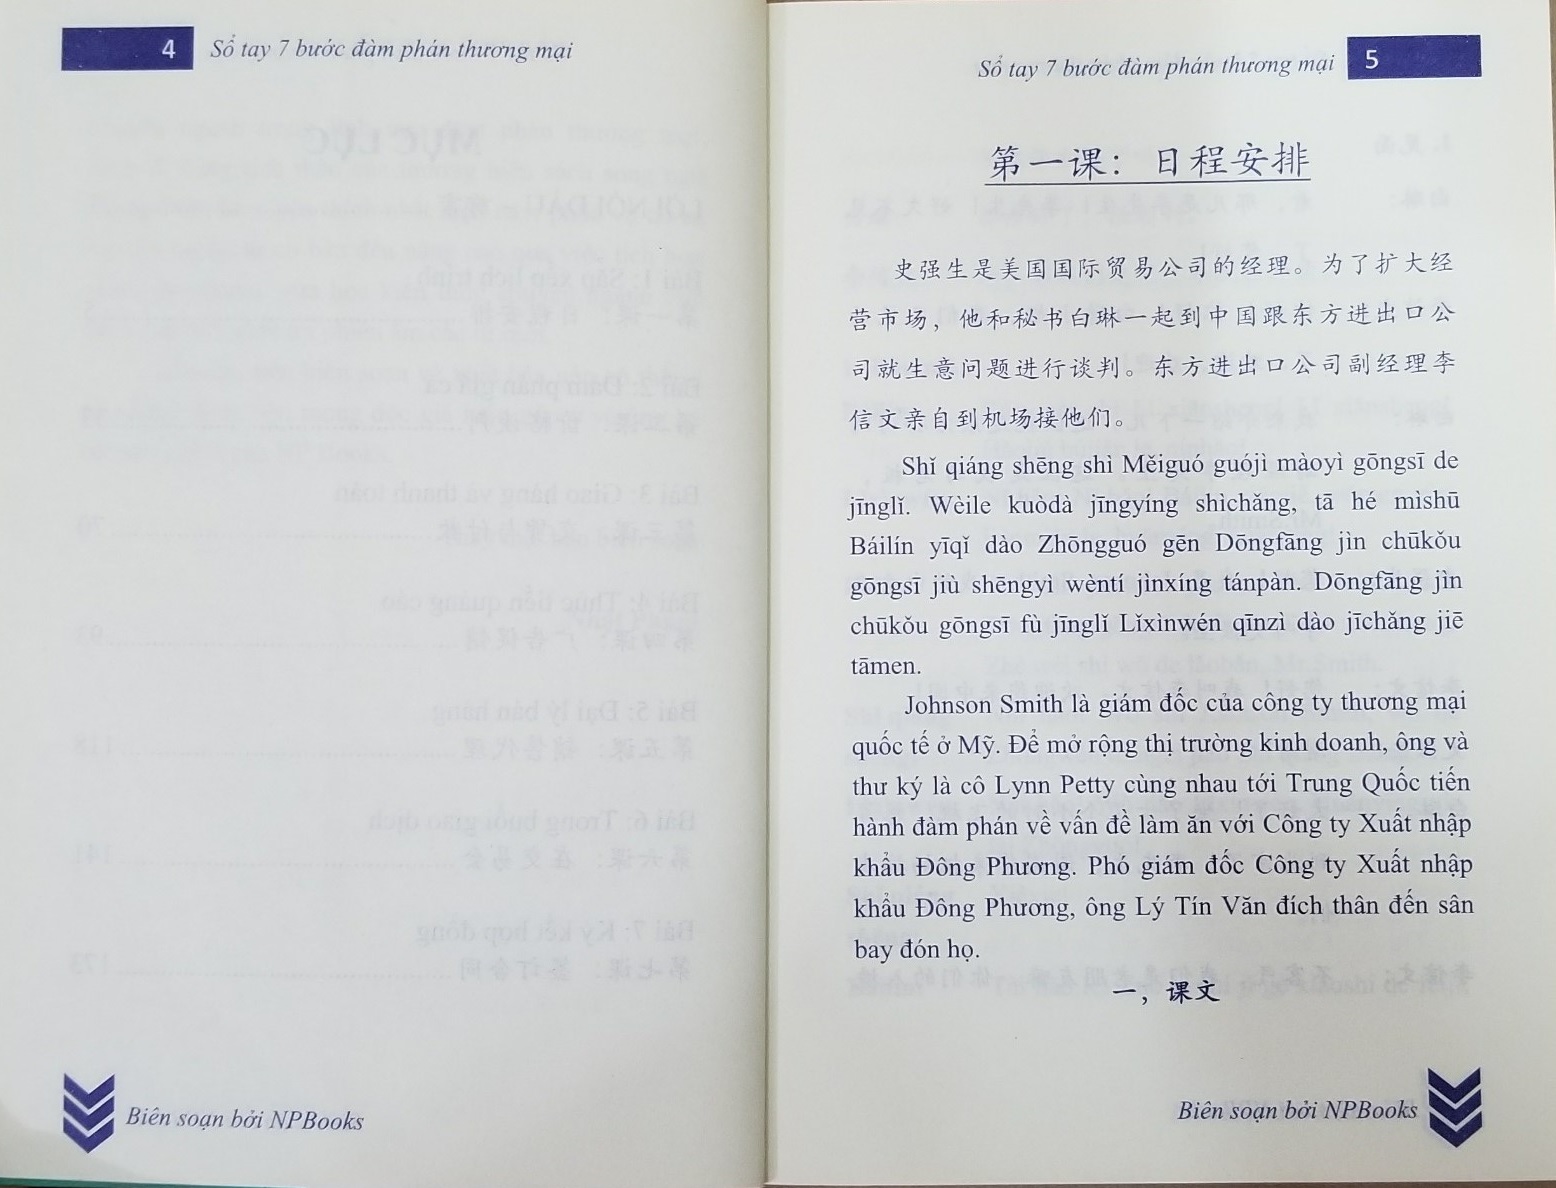 4
Sổ tay 7 bước đàm phán thương mại
Biên soạn bởi NPBooks
Sổ tay 7 bước đàm phán thương mại
5
第一课：日程安排
史强生是美国国际贸易公司的经理。为了扩大经
营市场，他和秘书白琳一起到中国跟东方进出口公
司就生意问题进行谈判。东方进出口公司副经理李
信文亲自到机场接他们。
Shǐ qiáng shēng shì Měiguó guójì màoyì gōngsī de
jīnglǐ. Wèile kuòdà jīngyíng shìchǎng, tā hé mìshū
Báilín yīqǐ dào Zhōngguó gēn Dōngfāng jìn chūkǒu
gōngsī jiù shēngyì wèntí jìnxíng tánpàn. Dōngfāng jìn
chūkǒu gōngsī fù jīnglǐ Lǐxìnwén qīnzì dào jīchǎng jiē
tāmen.
Johnson Smith là giám đốc của công ty thương mại
quốc tế ở Mỹ. Để mở rộng thị trường kinh doanh, ông và
thư ký là cô Lynn Petty cùng nhau tới Trung Quốc tiến
hành đàm phán về vấn đề làm ăn với Công ty Xuất nhập
khẩu Đông Phương. Phó giám đốc Công ty Xuất nhập
khẩu Đông Phương, ông Lý Tín Văn đích thân đến sân
bay đón họ.
一，课文
Biên soạn bởi NPBooks